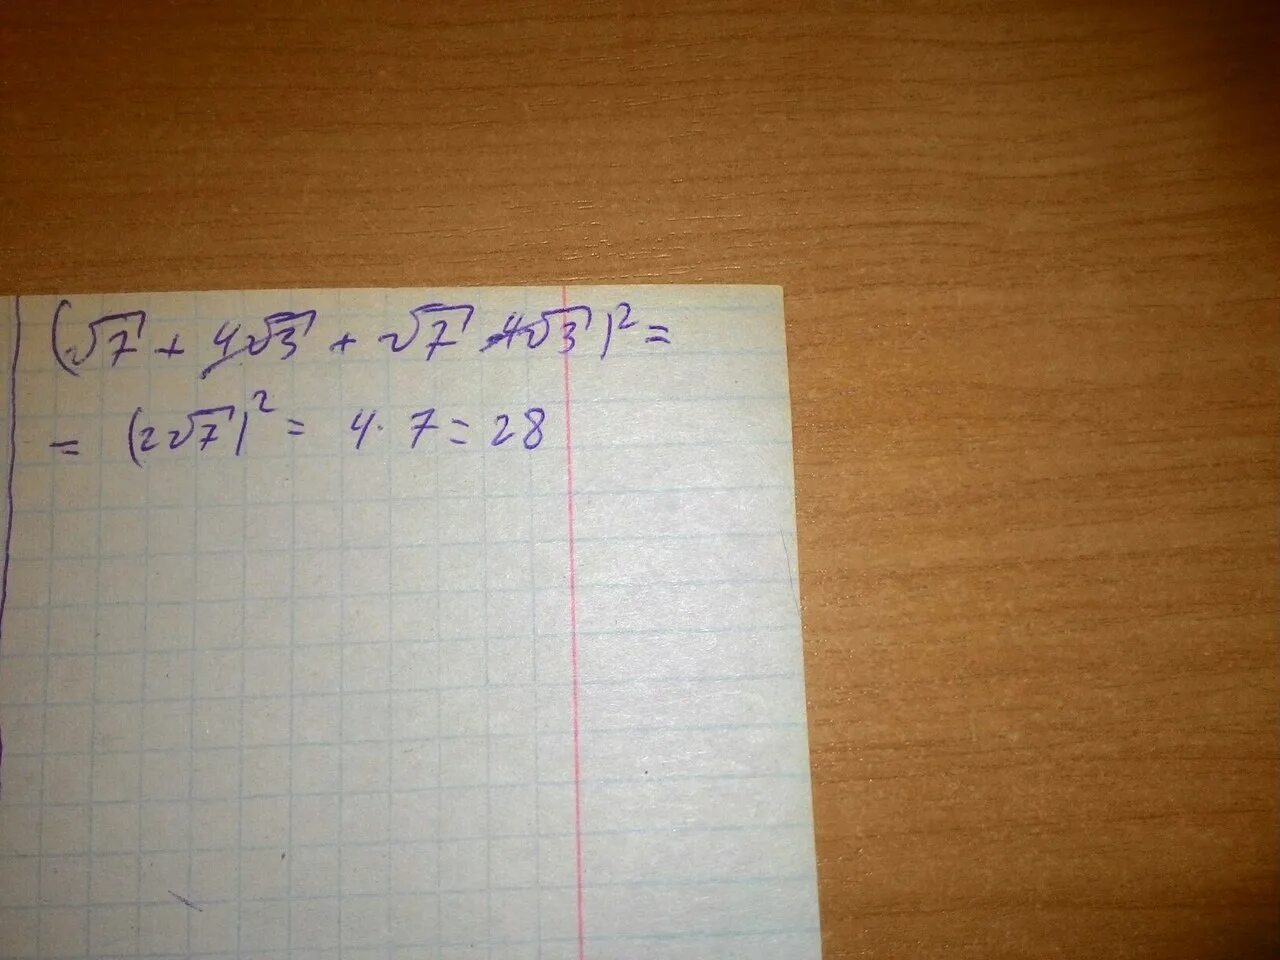 (√7 + 4√3 + √7 - 4√3)² =
= (2√7)² = 4 · 7 = 28